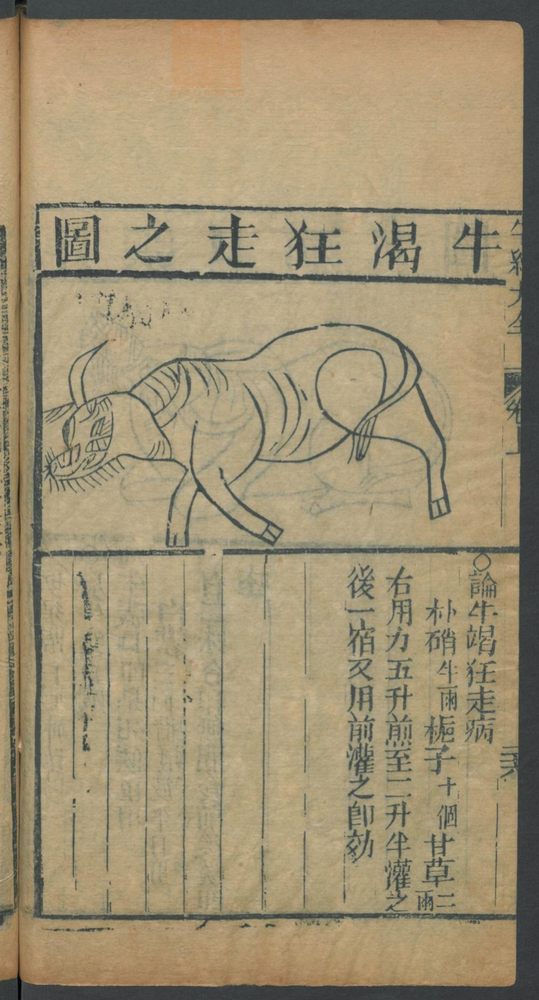 牛渴狂走之圖
○論牛竭狂走病
朴硝半兩梔子十個甘草二兩
右用力五升煎至二升半灌之
後一宿又用前灌之即効